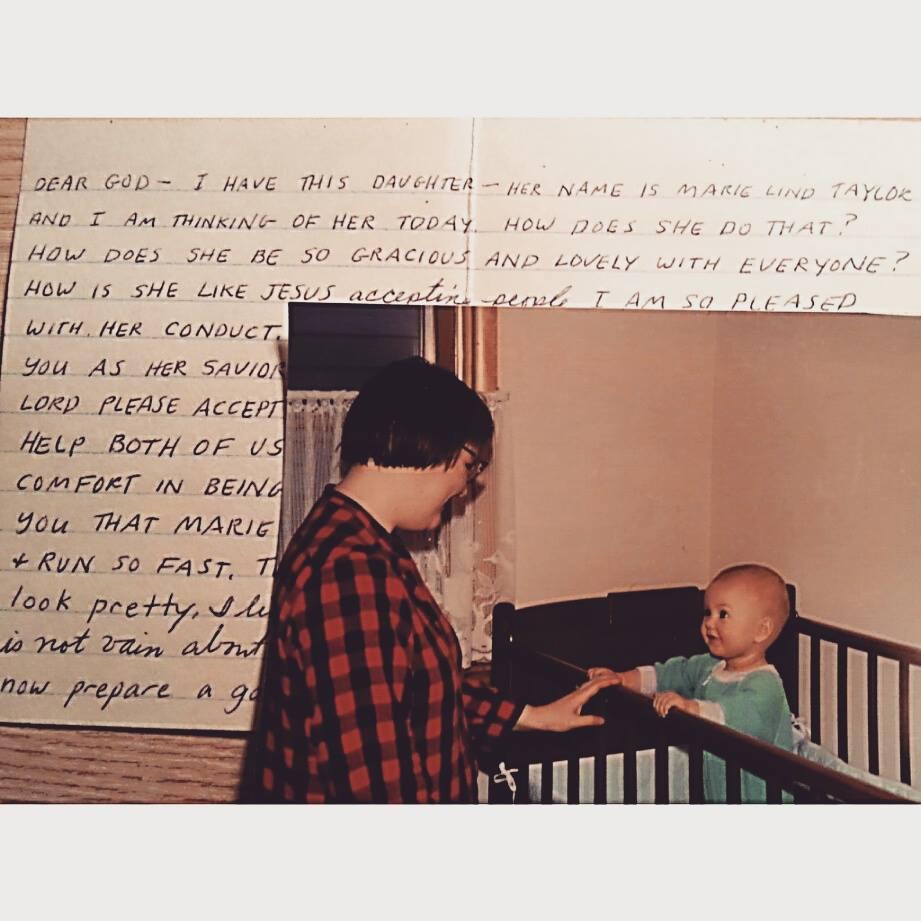 DEAR GOD - I HAVE THIS DAUGHTER - HER NAME IS MARIE LIND TAYLOR
AND I AM THINKING OF HER TODAY. HOW DOES SHE DO THAT?
HOW DOES SHE BE SO GRACIOUS AND LOVELY WITH EVERYONE?
HOW IS SHE LIKE JESUS accepting people I AM SO PLEASED
WITH HER CONDUCT.
YOU AS HER SAVIOR
LORD PLEASE ACCEPT
HELP BOTH OF US
COMFORT IN BEING
YOU THAT MARIE
+ RUN SO FAST.
look pretty, I
is not vain about
now prepare a